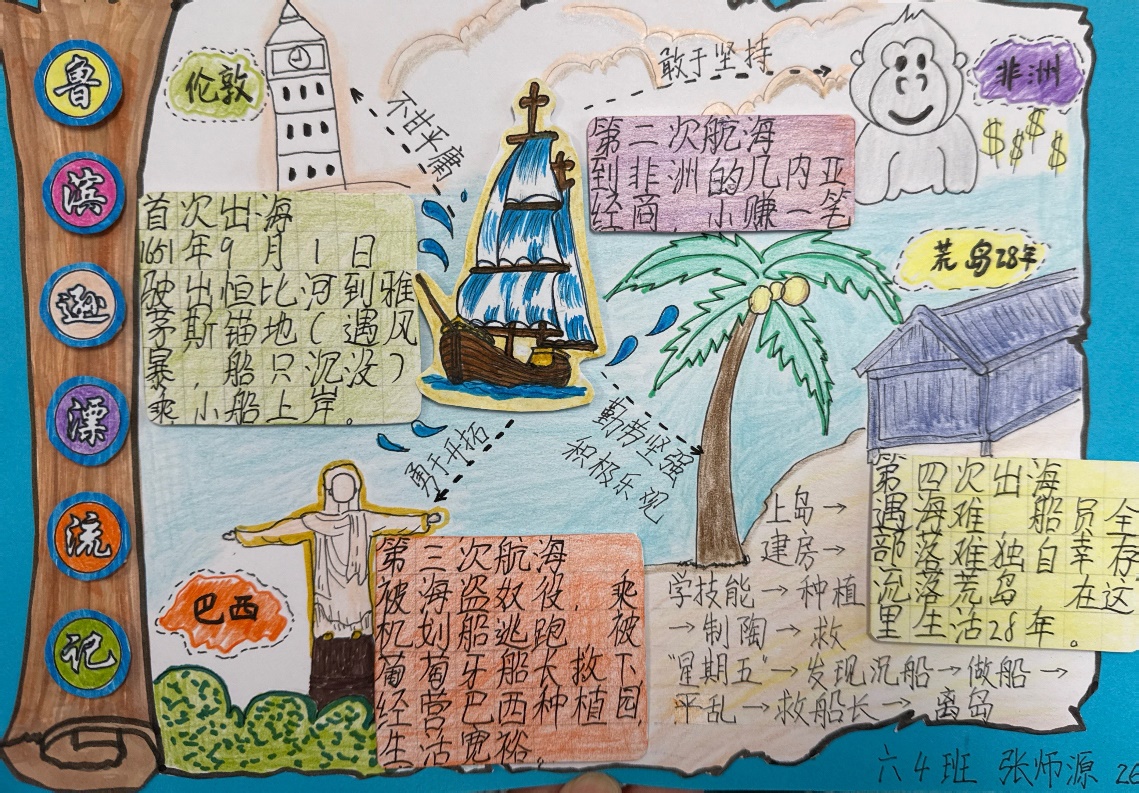 鲁
滨
逊
漂
流
记
伦敦
不甘平庸
敢于坚持
非洲
$ $ $ $ $
第二次航海
到非洲的几内亚
经商，小赚一笔
首次出海
1651年9月1日
驶出恒比河到雅
茅斯锚地（遇风
暴，船只沉没）
乘小船上岸。
荒岛28年
勇于开拓
勤劳坚强
积极乐观
巴西
第三次航海
被海盗奴役，乘
机划船逃跑 被
葡萄牙船长救下
经营巴西种植园，
生活宽裕。
第四次出海
遇海难 船员全
部落难独自幸存
流落荒岛 在这
里生活28年。
上岛→
建房→
学技能→种植
→制陶→救
"星期五"→发现沉船→做船→
平乱→救船长→离岛
六4班 张师源 26